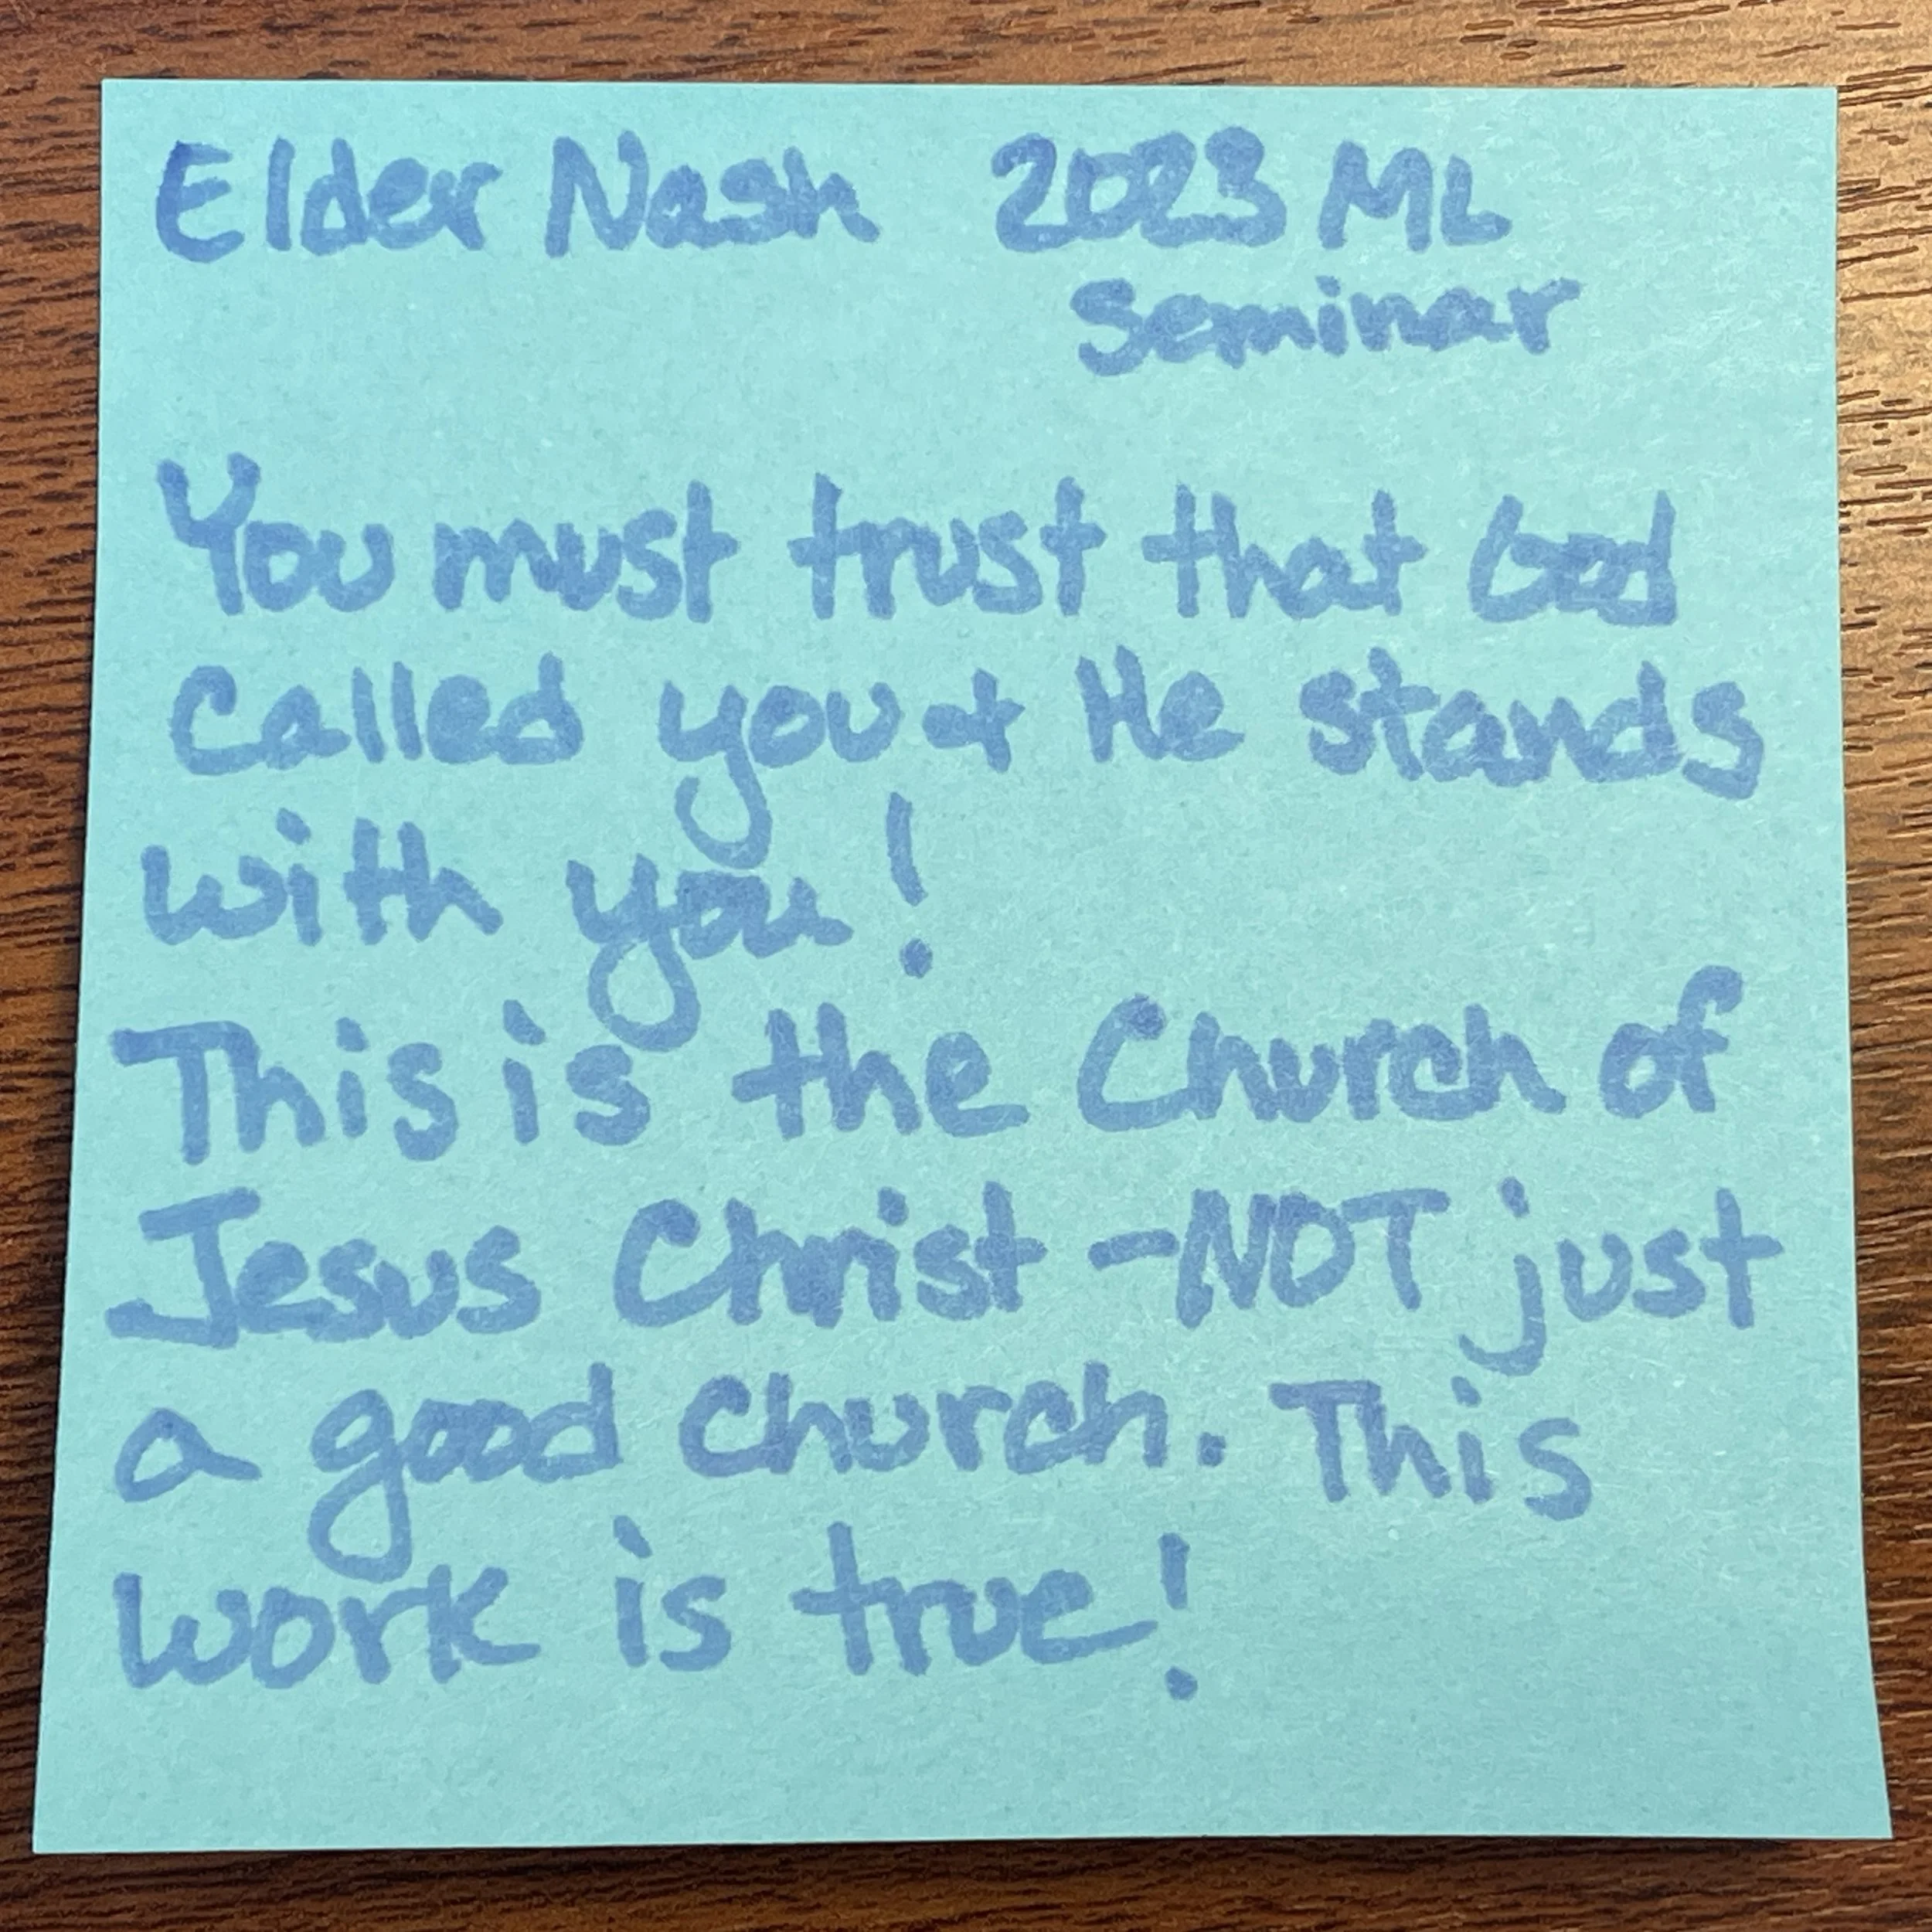 Elder Nash 2023 ML
Seminar
You must trust that God
called you & He stands
with you!
This is the Church of
Jesus Christ - NOT just
a good church. This
work is true!